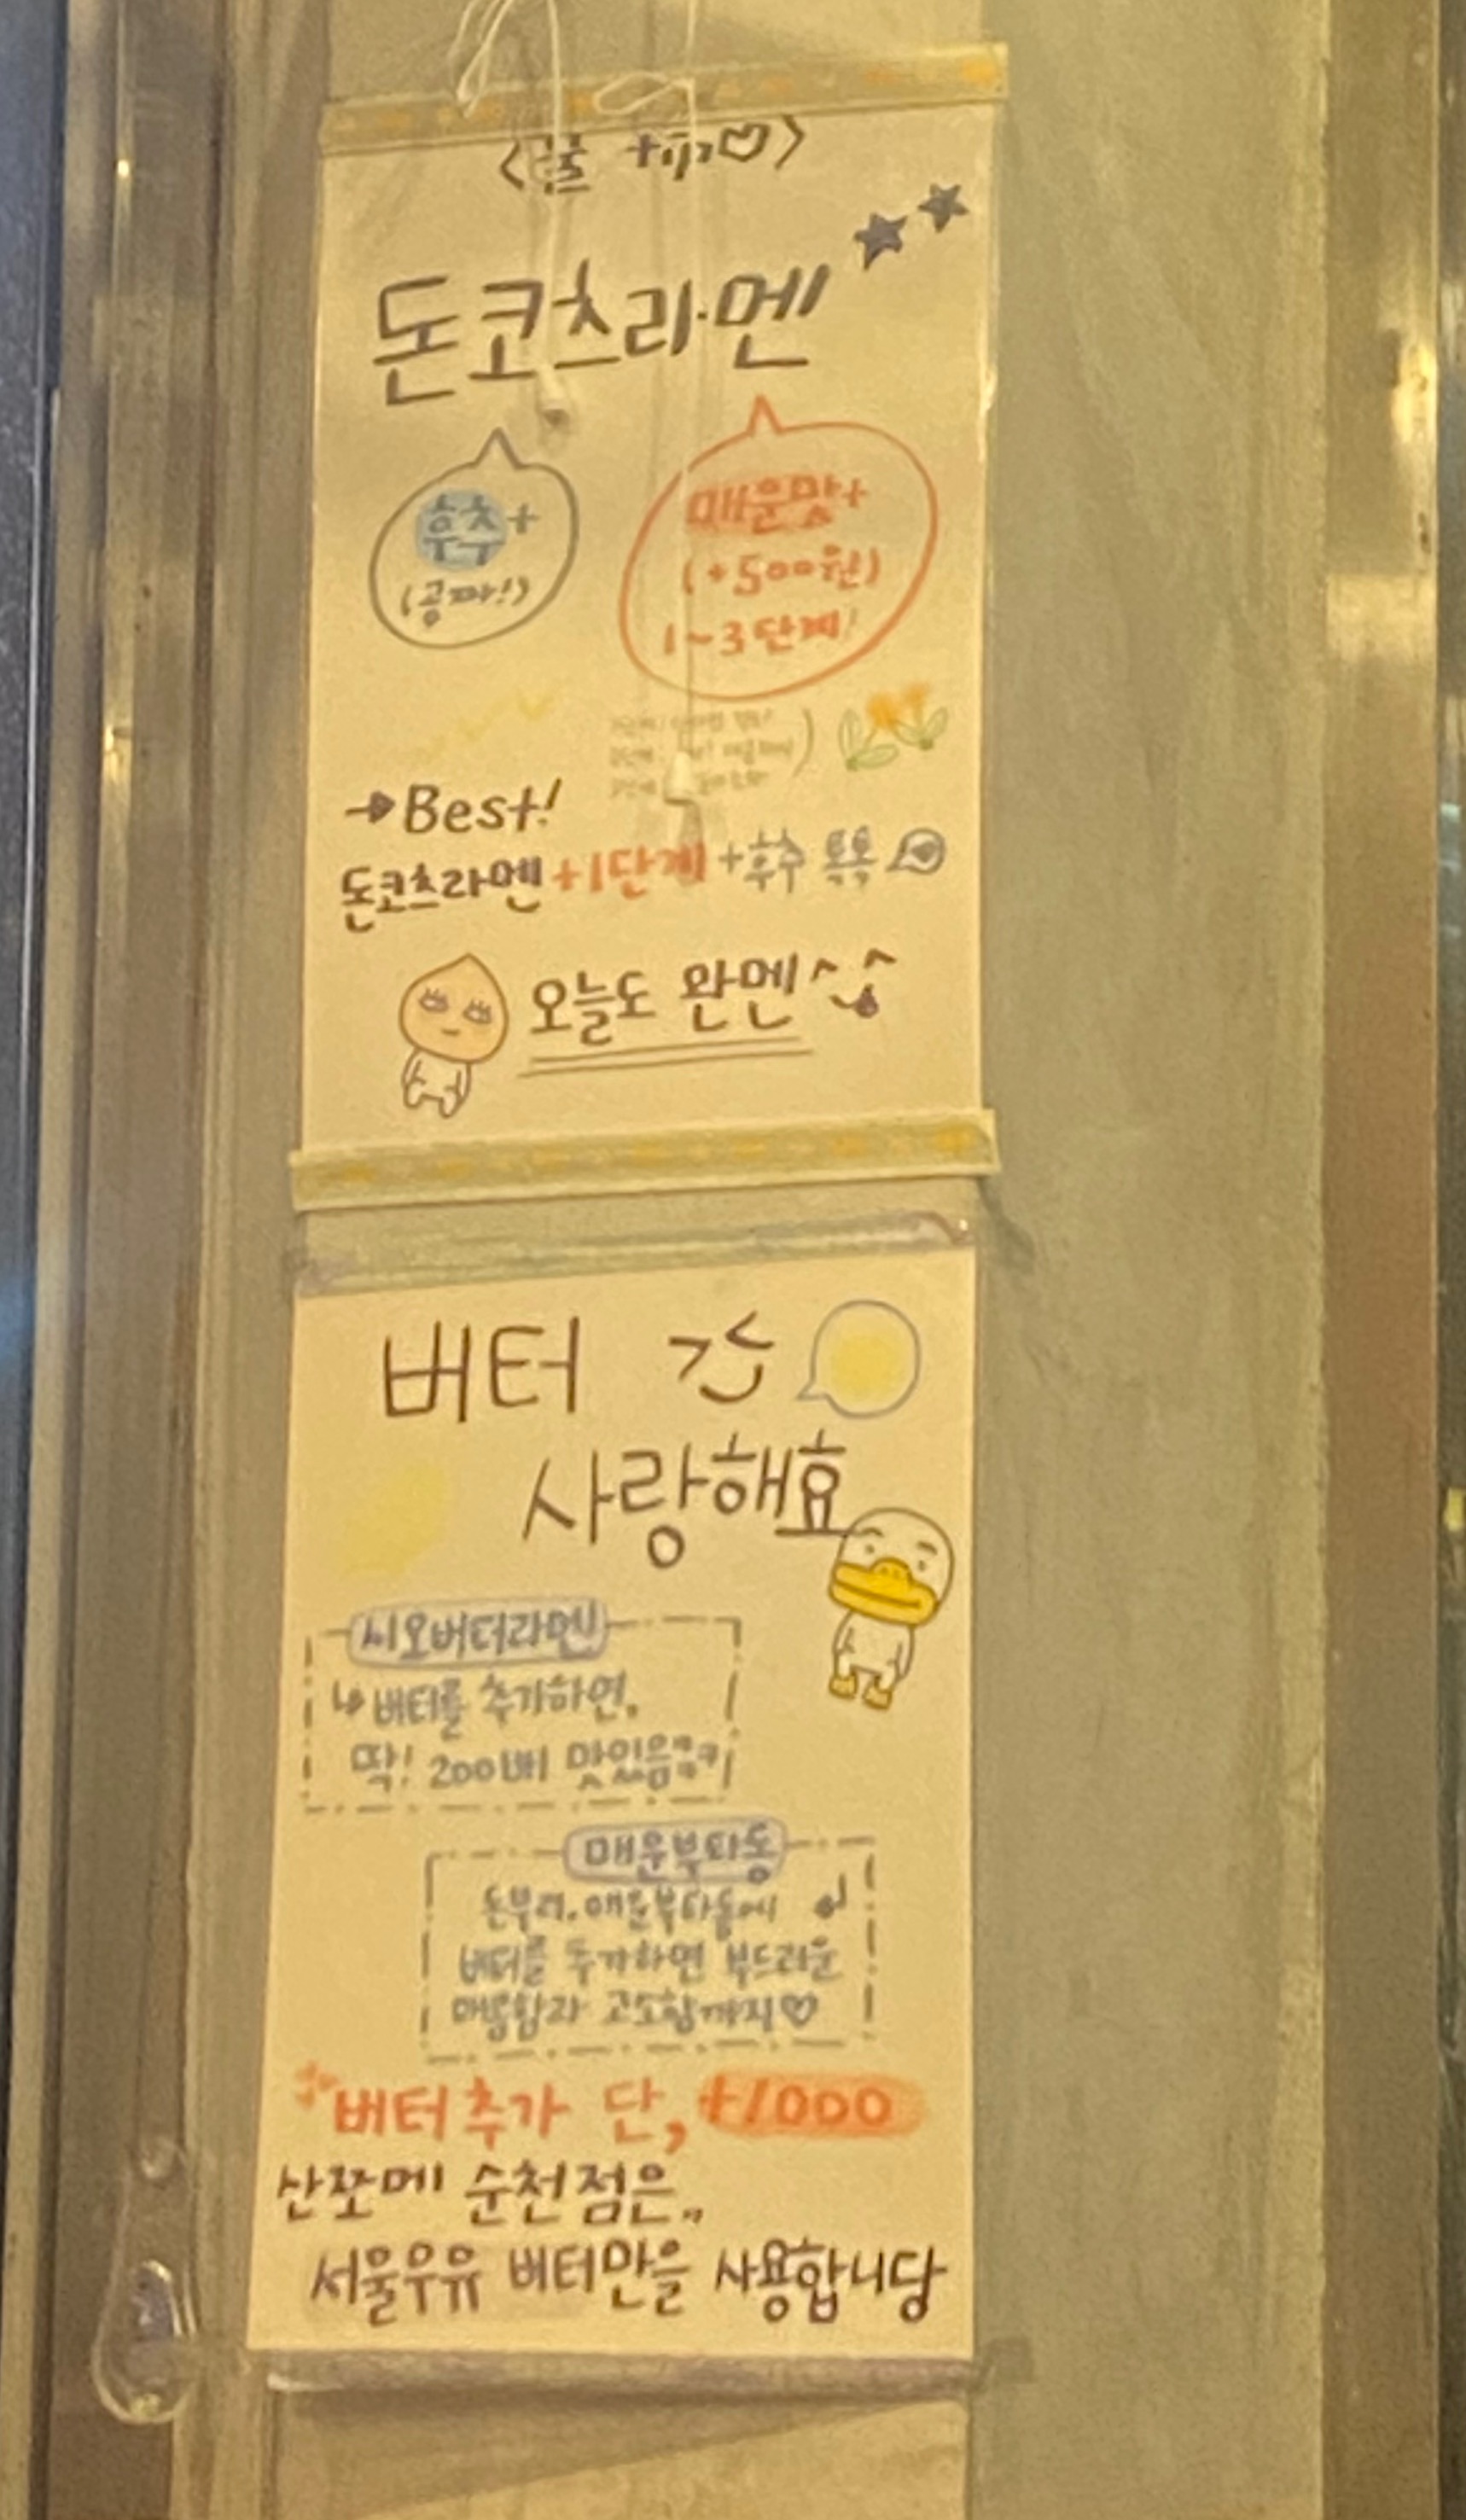 <꿀 tip♡>
돈코츠라멘
후추+
(공짜!)
매운맛+
(+500원)
1~3단계!
→Best!
돈코츠라멘+1단계+후추 톡톡
오늘도 완멘^^
버터
사랑해효
시오버터라멘
↳버터를 추가하면,
딱! 200배 맛있음
매운부타동
돈부리, 매운부타동에
버터를 추가하면 부드러운
매콤함과 고소함까지♡
버터추가 단, +1000
산쪼메 순천점은,,
서울우유 버터만을 사용합니당